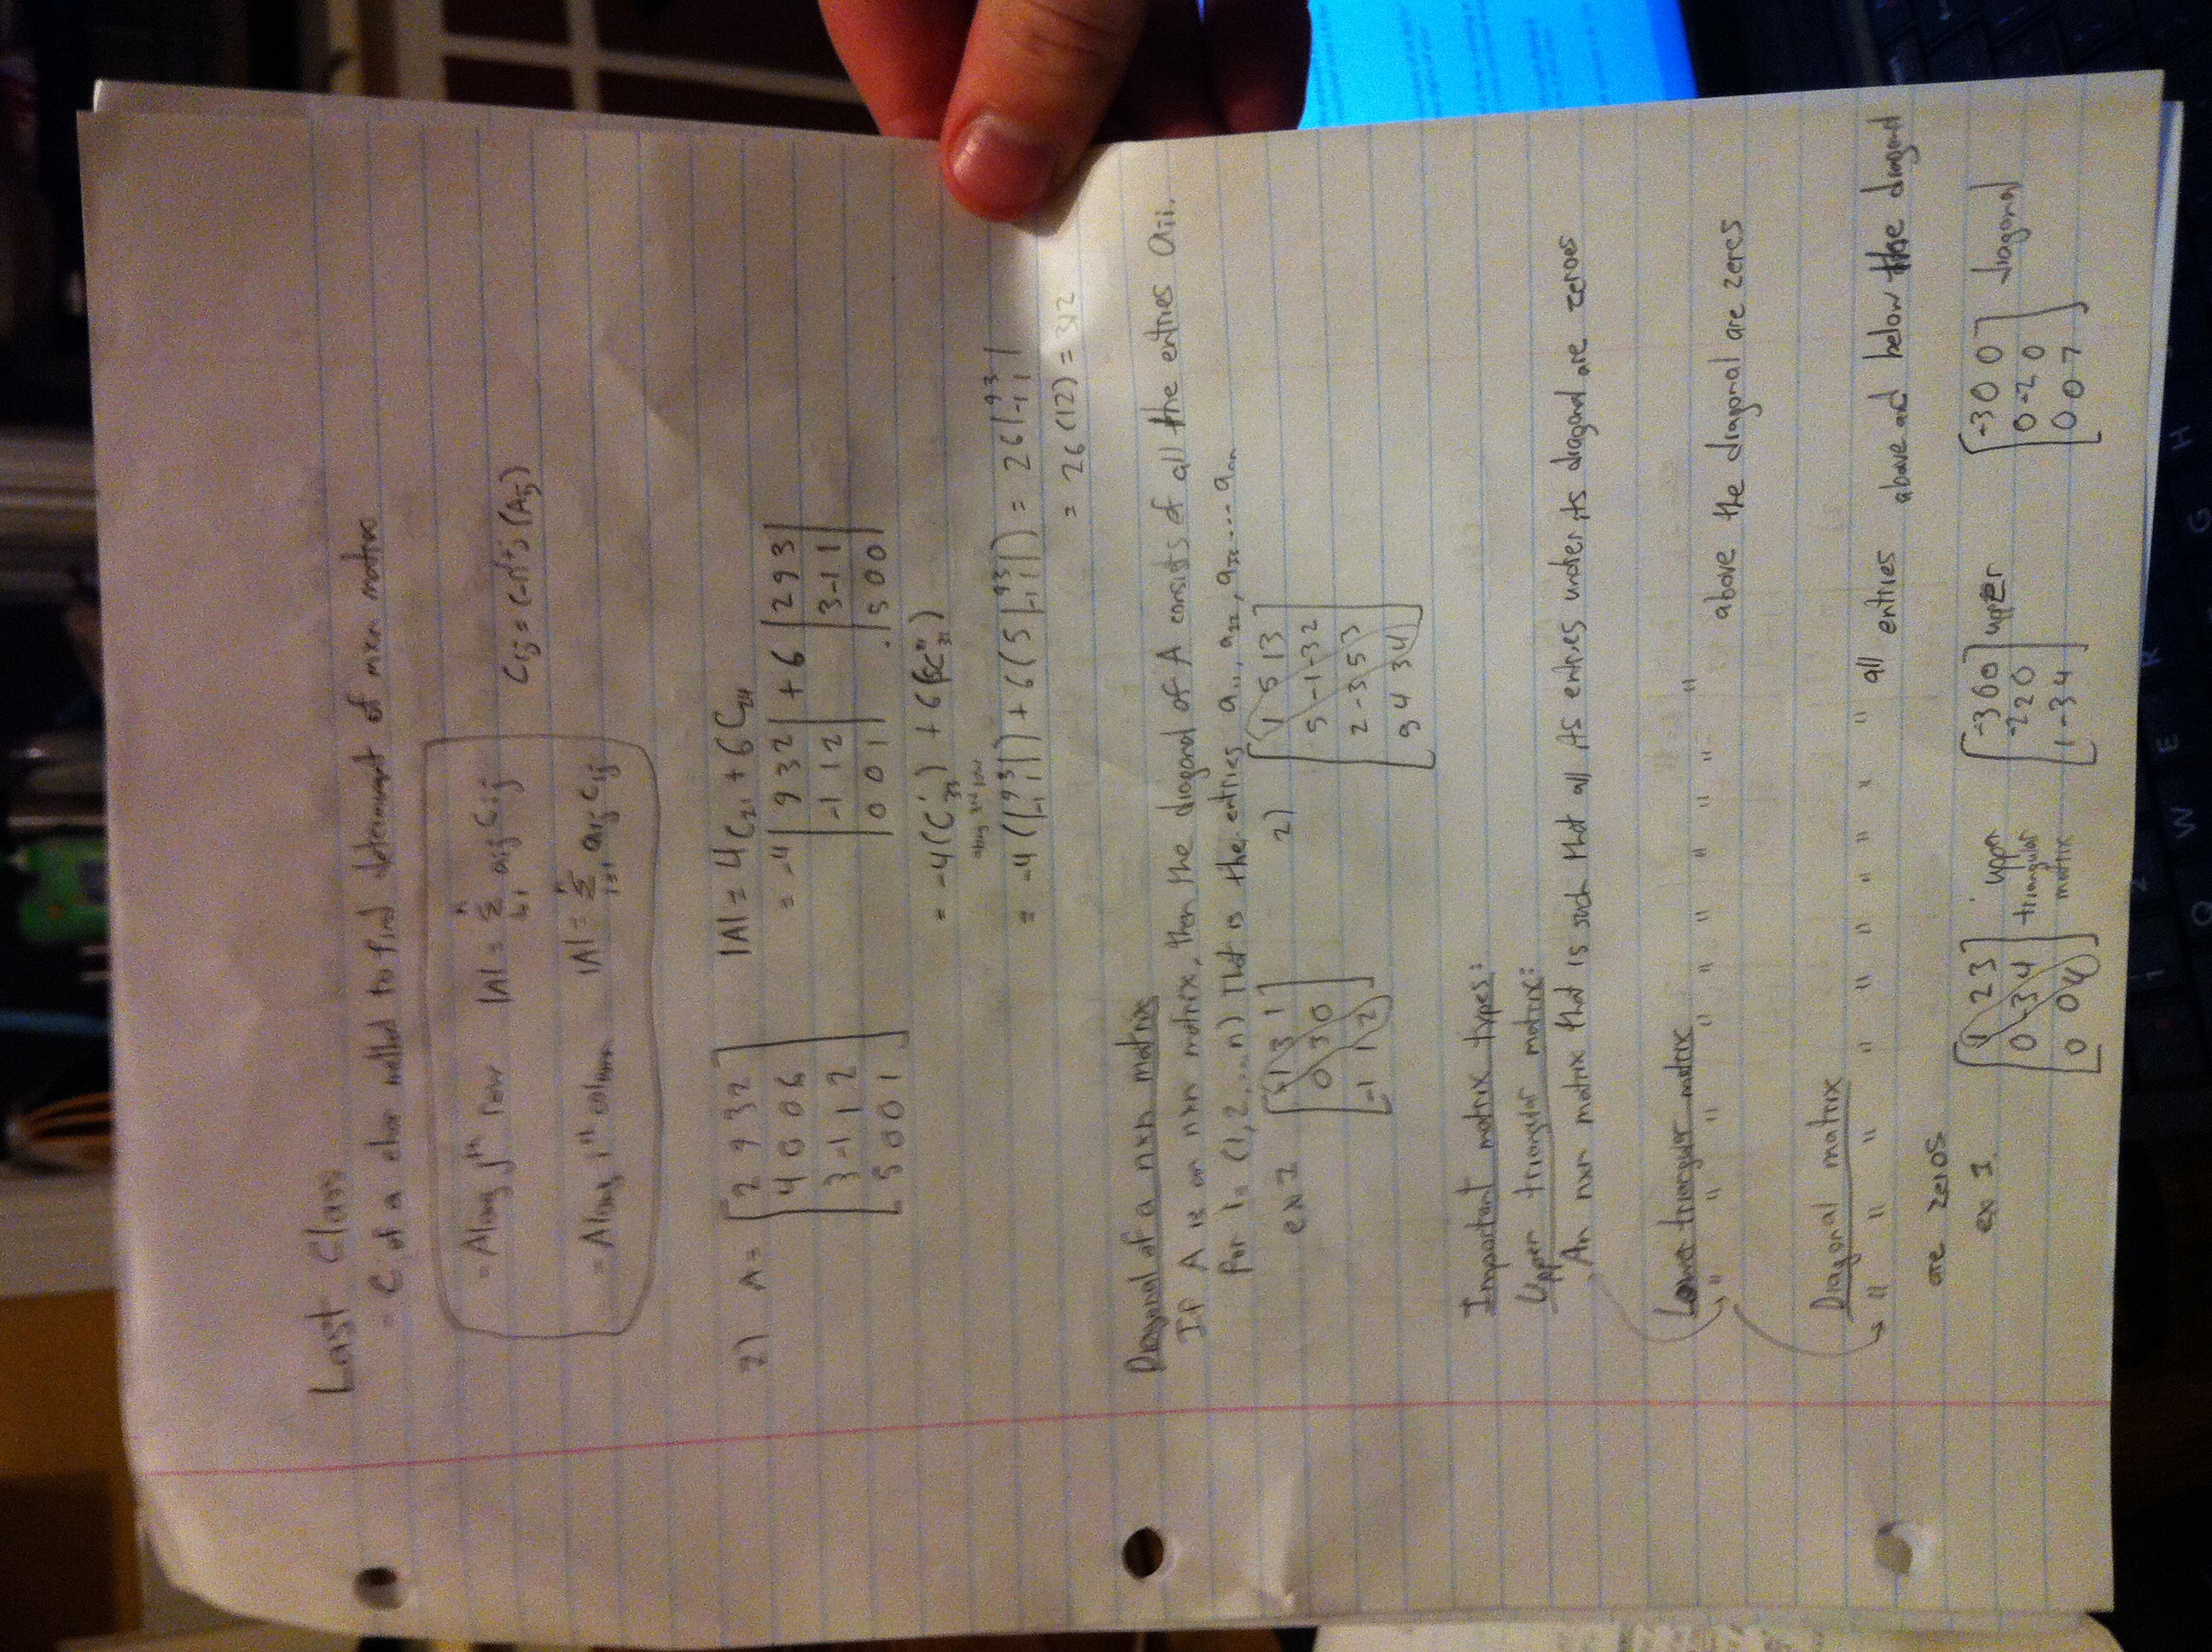 Last Class
- C of a char method to find determinant of nxn matrix
- Along jth row |A| = Σ aij Cij Cij = (-1)i+j (Aij)
= Along ith column |A| = Σ aij Cij
2) A = [2 9 3 2 |A| = 4C21 + 6C24
4 0 0 6 = -4 |9 3 2| + 6 |2 9 3|
3 -1 1 2 |-1 1 2| |3 -1 1|
5 0 0 1] |0 0 1| |5 0 0|
= -4(C'33) + 6(5C"31)
along 3rd row
= -4(|9 3 -1 1|) + 6(5|9 3 -1 1|) = 26|9 3 -1 1|
= 26(12) = 312
Diagonal of a nxn matrix
If A is an nxn matrix, then the diagonal of A consists of all the entries aii.
for i = (1, 2, ... n) that is the entries a11, a22, a33 .... ann
ex 1 [1 3 1 2) [1 5 1 3
0 3 0 5 -1 -3 2
-1 1 2] 2 -3 5 3
9 4 3 4]
Important matrix types:
Upper triangular matrix:
An nxn matrix that is such that all its entries under its diagonal are zeroes
Lower triangular matrix
" " " " " " " " " above the diagonal are zeros
Diagonal matrix
" " " " " " " " " all entries above and below the diagonal
are zeros
ex 1. [1 2 3] upper [-3 6 0] upper [-3 0 0] diagonal
0 -3 4 triangular -2 2 0 0 -2 0
0 0 4] matrix 1 -3 4] 0 0 7]